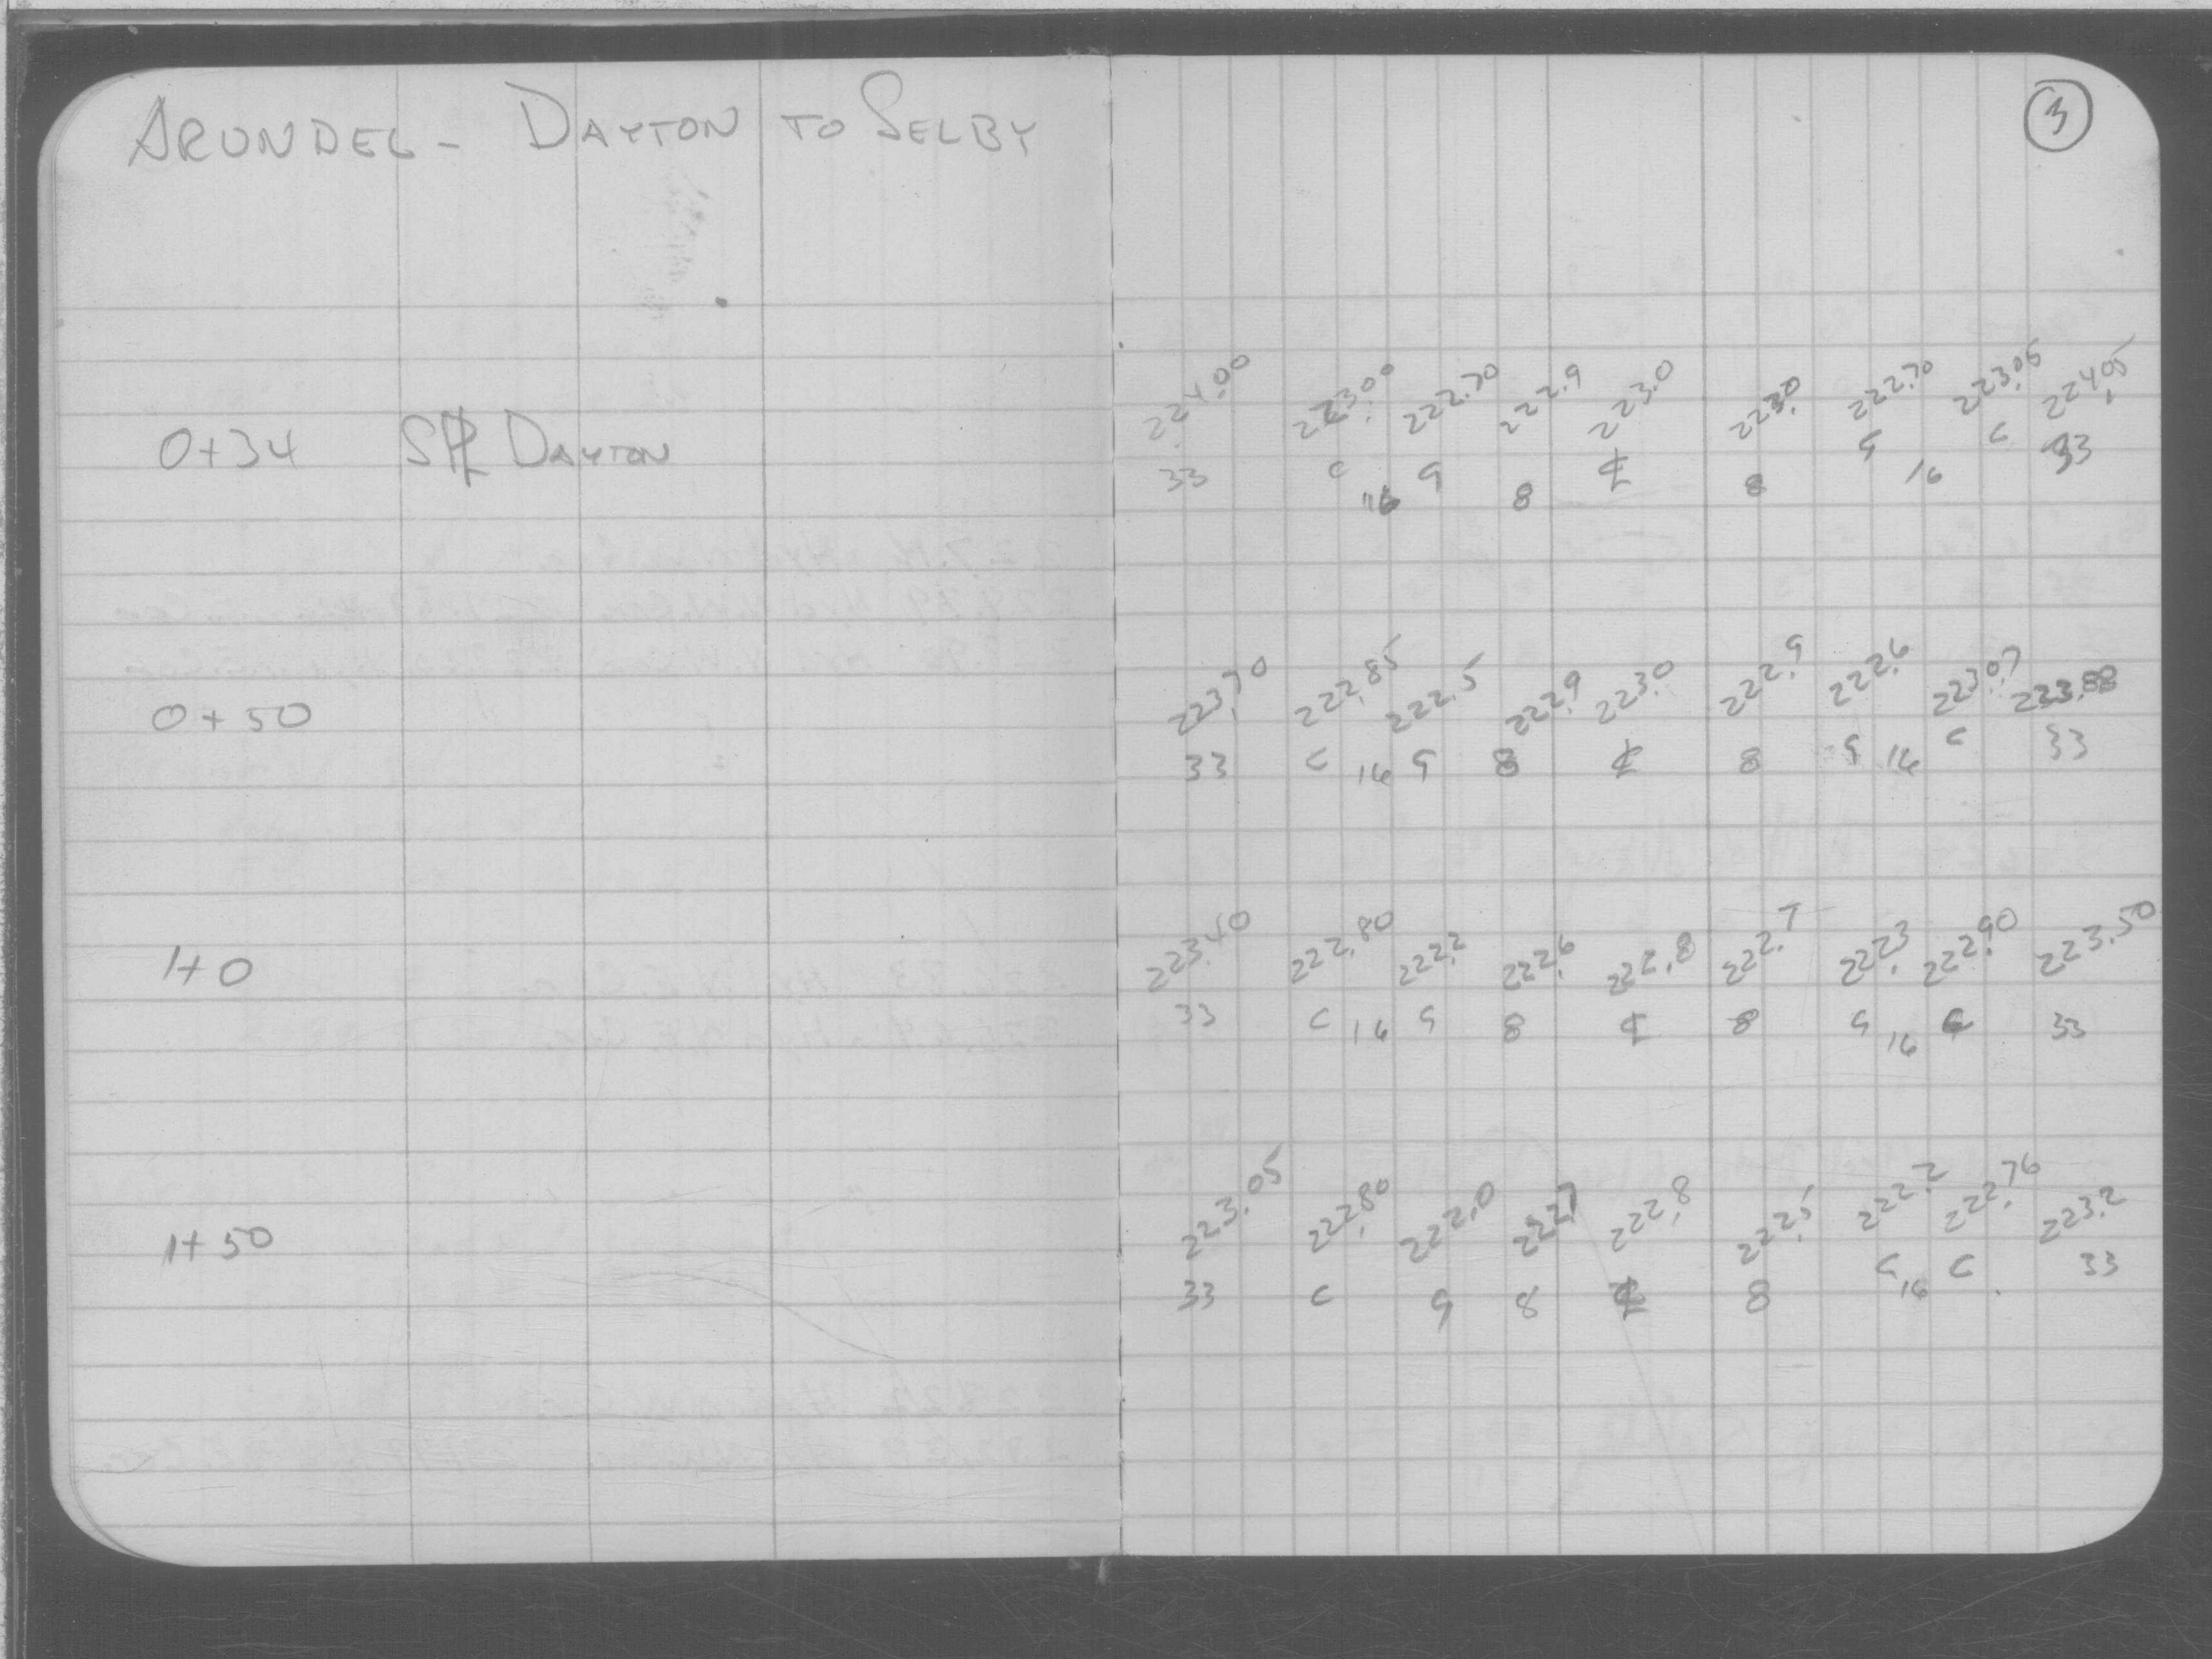 ARUNDEL - DAYTON TO SELBY
3
224.00 223.00 222.70 222.9 223.0 223.0 222.70 223.06 224.05
0+34 S℄ DAYTON
33 C 16 G 8 ℄ 8 G 16 C 33
223.70 222.85 222.5 222.9 223.0 222.9 222.6 223.07 223.88
0+50
33 C 16 G 8 ℄ 8 G 16 C 33
223.40 222.80 222.2 222.6 222.8 222.7 222.3 222.90 223.50
1+0
33 C 16 G 8 ℄ 8 G 16 C 33
223.05 222.80 222.0 222.7 222.8 222.5 222.2 222.76 223.2
1+50
33 C G 8 ℄ 8 C 16 C 33